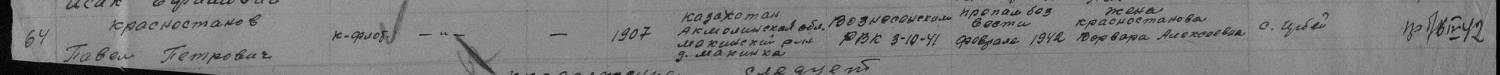 Исак
красностанов
64
Павел Петрович
к-флот
— „ —
—
1907
казахстан
Акмолинская обл.
макинский р-н
д. макинка
Вознесенским
РВК 3-10-41
пропал без
вести
февраль 1942
жена
красностанова
Варвара Алексеевна
с.
следует